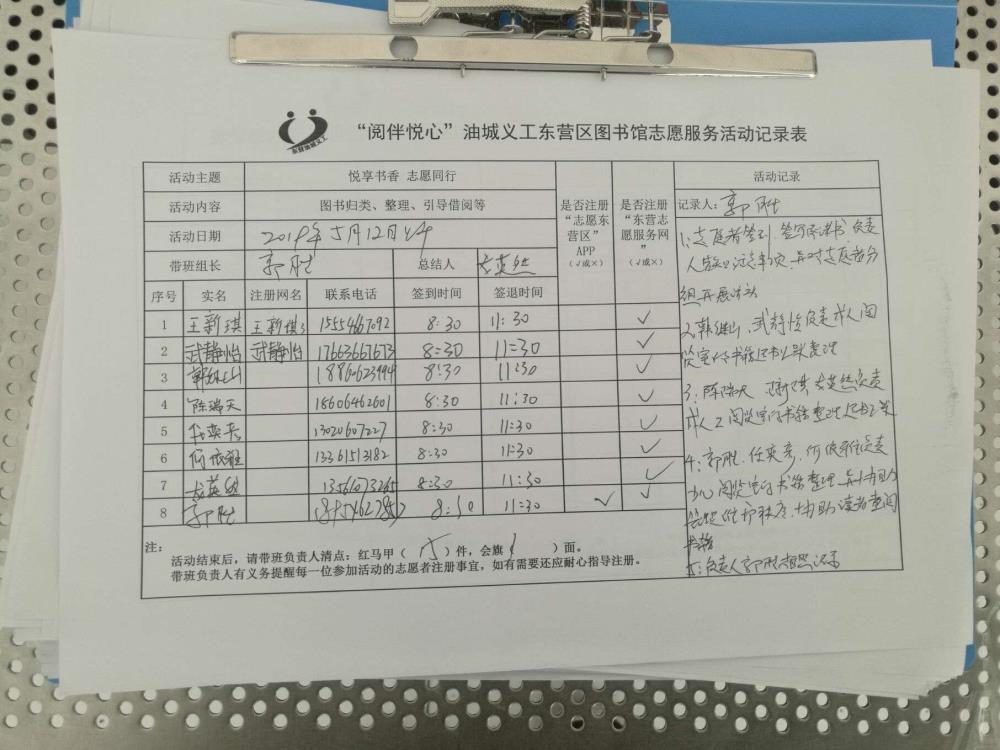 东营油城义工
“阅伴悦心”油城义工东营区图书馆志愿服务活动记录表
活动主题 悦享书香 志愿同行
活动内容 图书归类、整理、引导借阅等
活动日期 2019年5月12日
带班组长 郭胜 总结人
是否注册“志愿东营区”APP（√或×）
是否注册“东营志愿服务网”（√或×）
序号 实名 注册网名 联系电话 签到时间 签退时间
1 王新琪 王新琪 15554667092 8:30 11:30 √
2 武静怡 武静怡 17663667673 8:30 11:30 √
3 8:30 11:30 √
4 陈瑞天 18606462601 8:30 11:30 √
5 13020607227 8:30 11:30 √
6 13361513182 8:30 11:30 √
7 8:30 11:30 √
8 郭胜 8:30 11:30 √ √
活动记录
记录人：郭胜
1、志愿者签到、负责
志愿者分
组开展活动
2、武静怡负责成人阅
览室
3、陈瑞天 负责
成人2阅览室 书籍整理
4、郭胜、负责
少儿阅览室 书籍整理
维护秩序，协助读者查阅
书籍
5、负责人郭胜
注：
活动结束后，请带班负责人清点：红马甲（15）件，会旗（1）面。
带班负责人有义务提醒每一位参加活动的志愿者注册事宜，如有需要还应耐心指导注册。